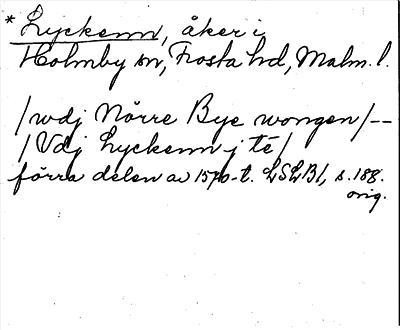 * Lyckenn, åker i
Holmby sn, Frosta hd, Malm. l.
/wdj Nörre Bye wongen/--
/Vdj Lyckenn j té/
förra delen av 1570-t. LSLB1, s. 188.
orig.